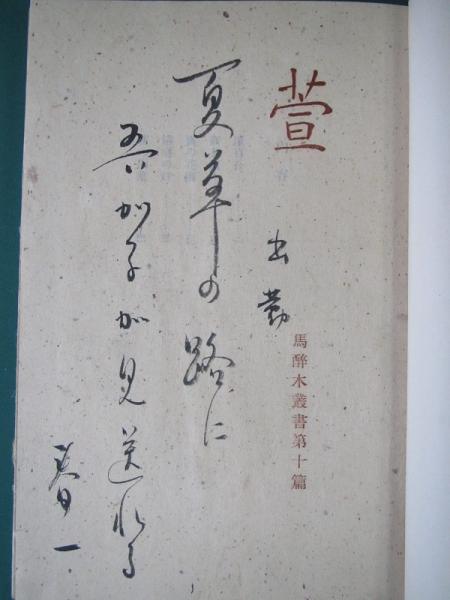 萱
馬醉木叢書第十篇
出勤
夏草の路に
吾か子か見送れる
春一